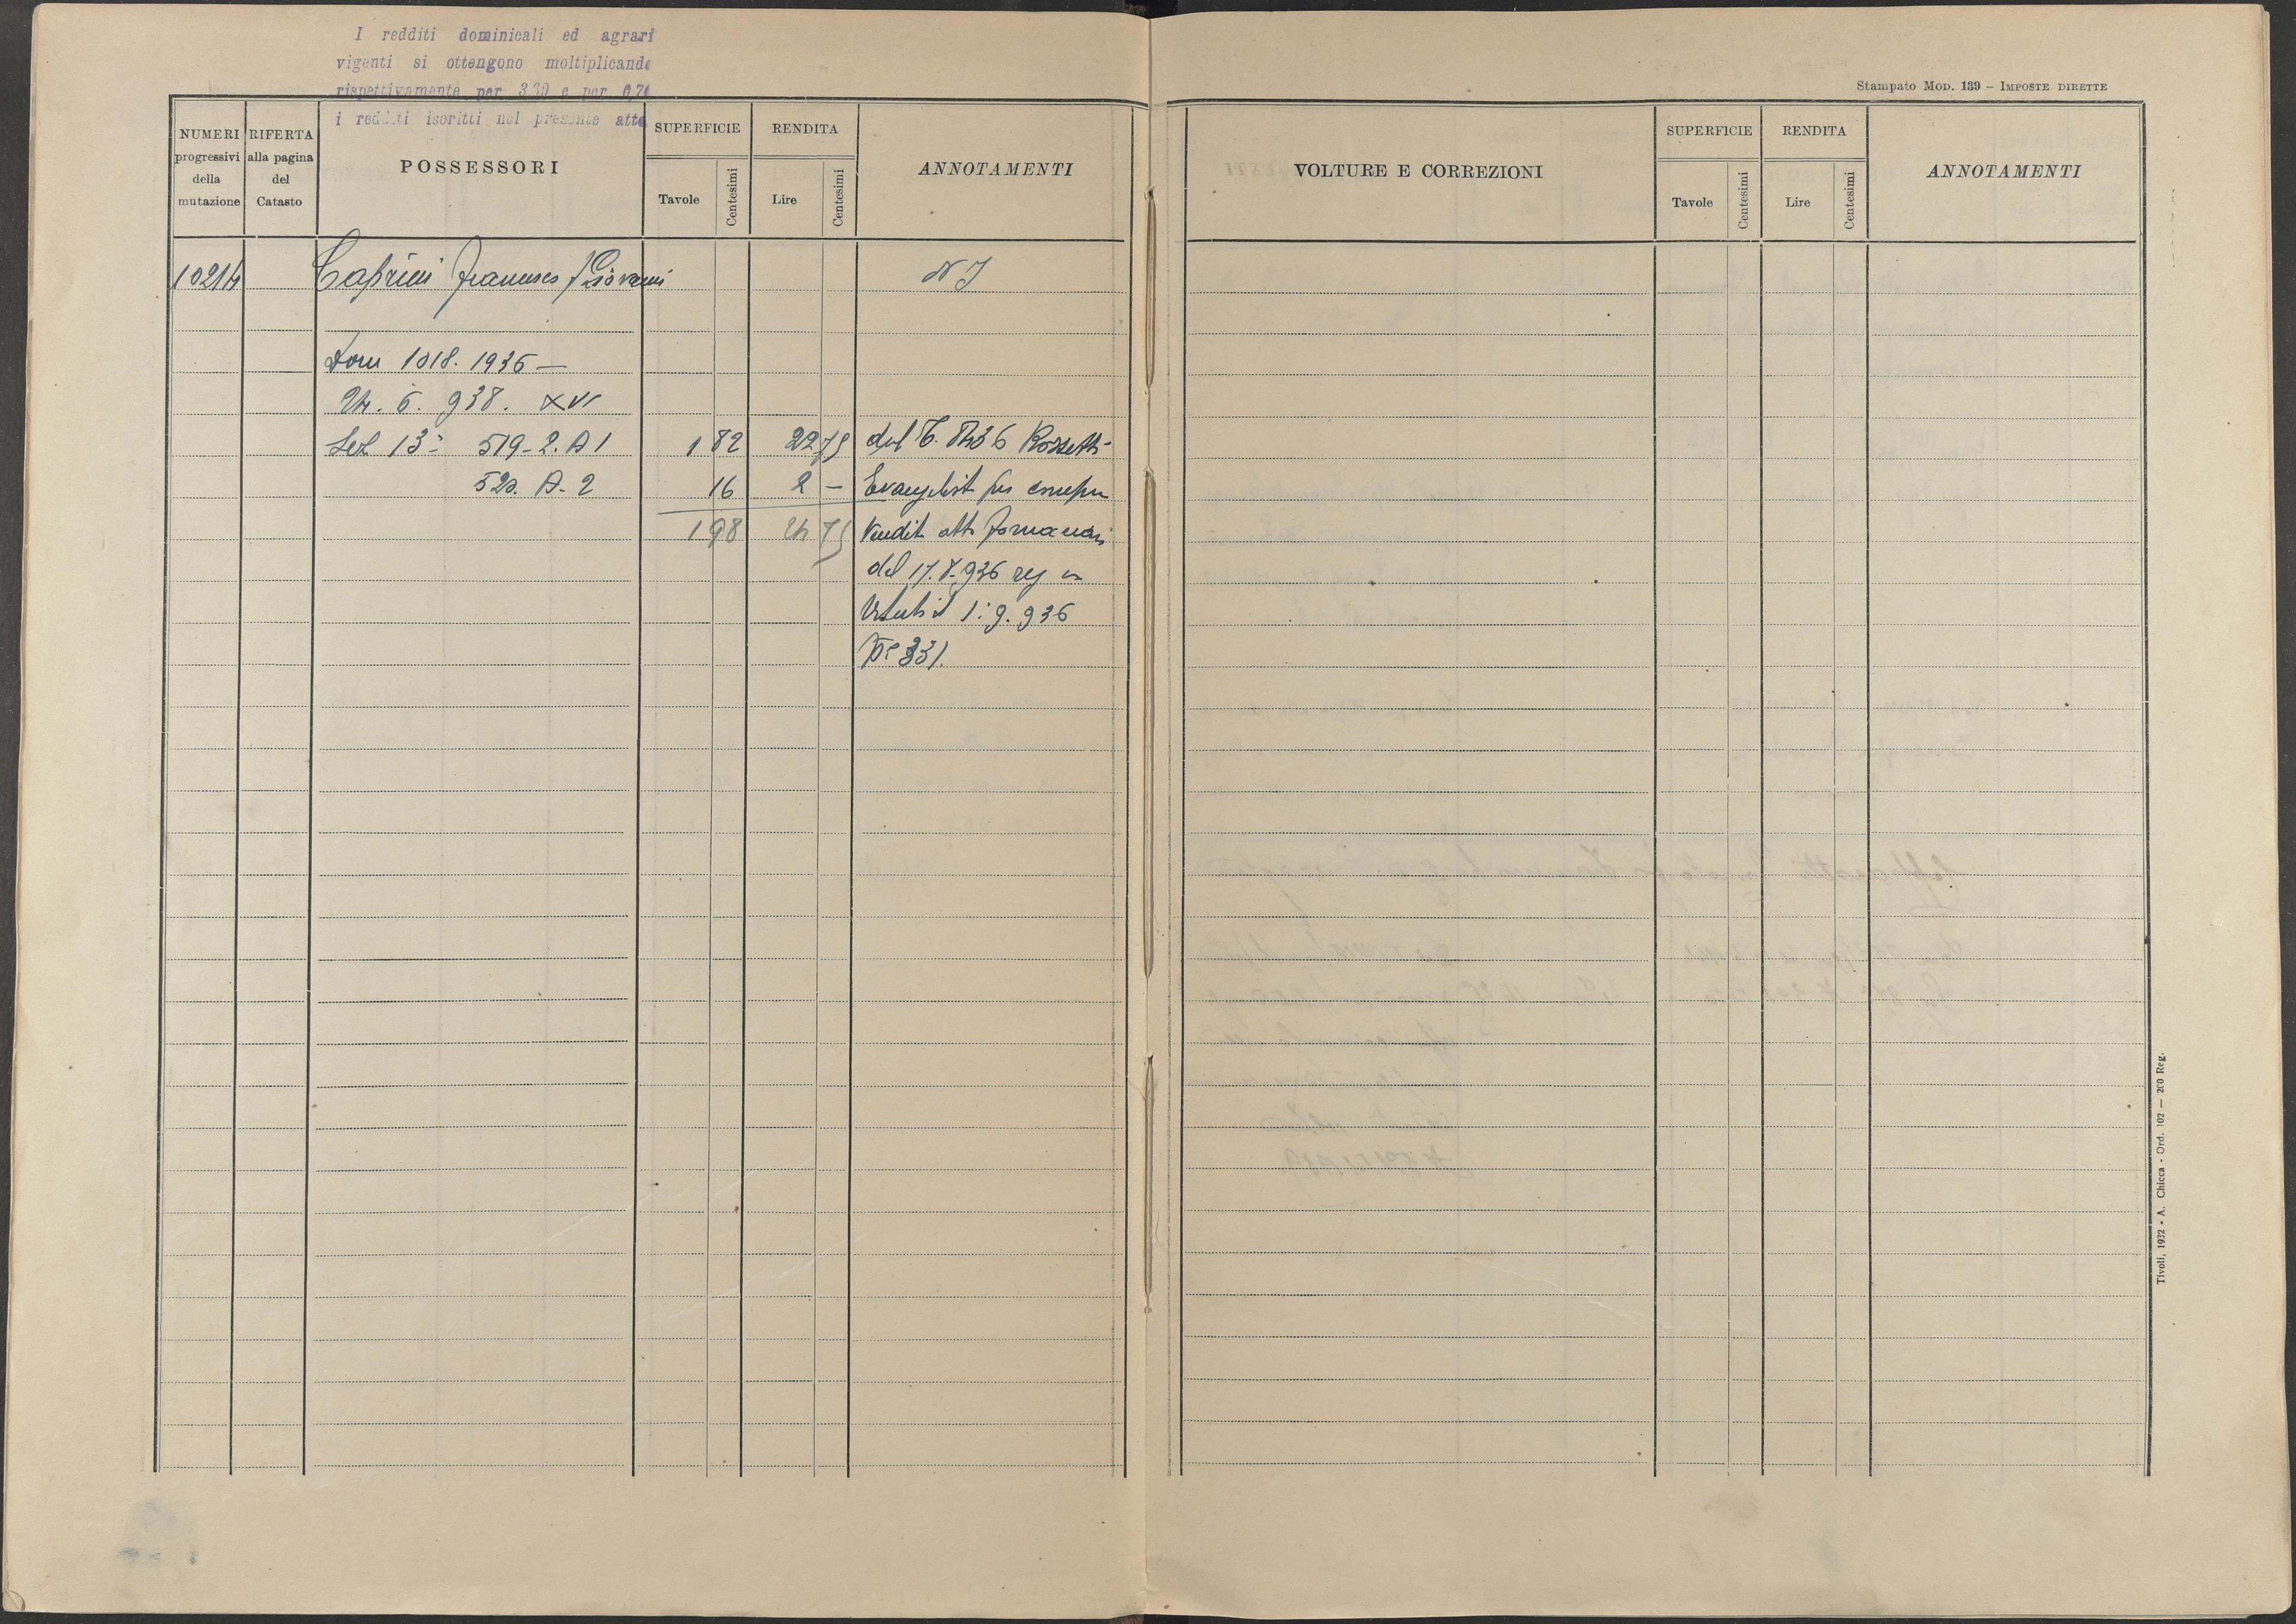 I redditi dominicali ed agrari
vigenti si ottengono moltiplicando
rispettivamente per 3.30 e per 0,70
i redditi iscritti nel presente atto
NUMERI progressivi della mutazione
RIFERTA alla pagina del Catasto
POSSESSORI
SUPERFICIE
Tavole
Centesimi
RENDITA
Lire
Centesimi
ANNOTAMENTI
10214 Caprini Francesco f Giovanni N I
Dom 1018. 1936 —
24. 6. 938. XVI
Sez 13ª 519-2. A 1 1 82 22 75 dal T. Rossetti
520. A- 2 16 2 — Evangelist per
1 98 24 75 Vendit atto Fornaciari
del 17.8.936 reg in
Viterbo il 1: 9. 936
Nº 331.
Stampato MOD. 139 – IMPOSTE DIRETTE
VOLTURE E CORREZIONI
SUPERFICIE
Tavole
Centesimi
RENDITA
Lire
Centesimi
ANNOTAMENTI
Tivoli, 1932 - A. Chicca - Ord. 102 — 200 Reg.